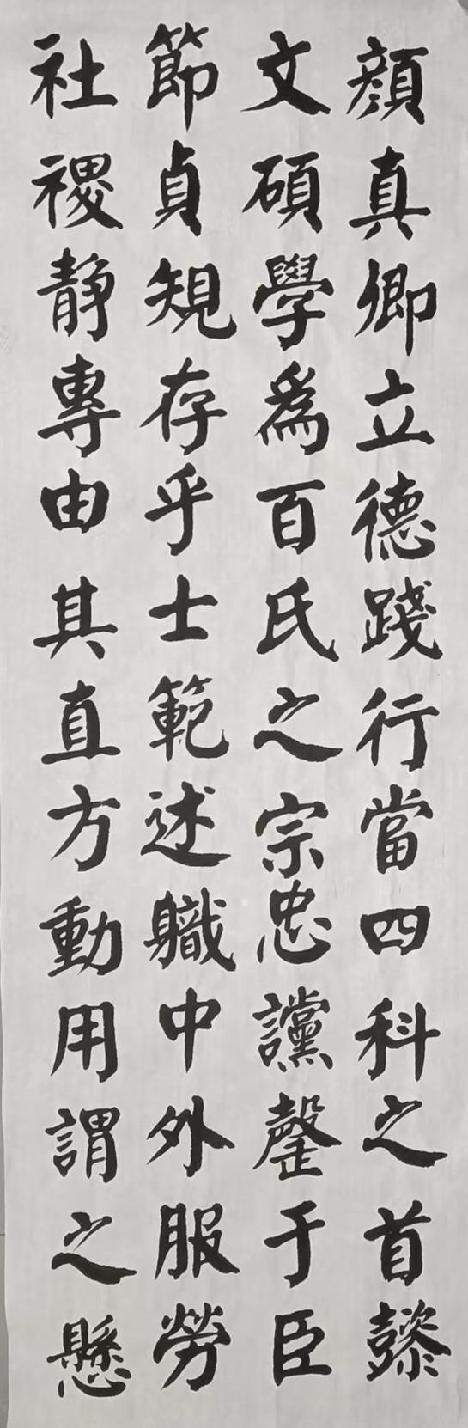 顔真卿立德踐行當四科之首懿
文碩學爲百氏之宗忠讜罄于臣
節貞規存乎士範述職中外服勞
社禝静專由其直方動用謂之懸